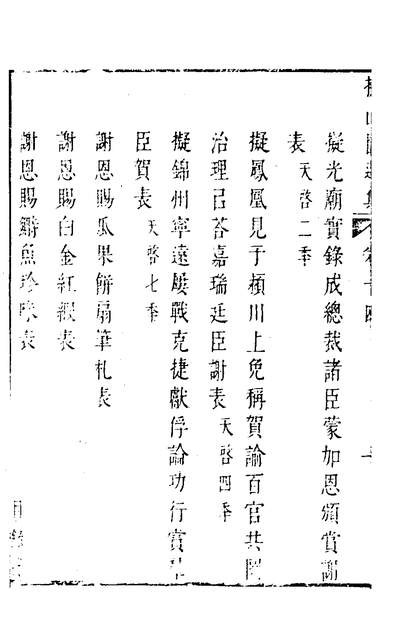 擬光廟實錄成總裁諸臣蒙加恩頒賞謝
表 天啓二年
擬鳳凰見于潁川上免稱賀諭百官共圖
治理已荅嘉瑞廷臣謝表 天啓四年
擬錦州寧遠屢戰克捷獻俘論功行賞
臣賀表 天啓七年
謝恩賜瓜果餅扇筆札表
謝恩賜白金紅緞表
謝恩賜鰣魚珍味表